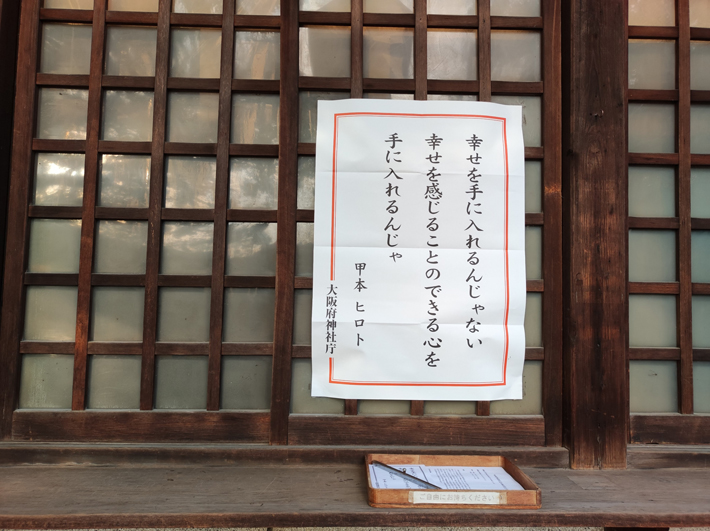 幸せを手に入れるんじゃない
幸せを感じることのできる心を
手に入れるんじゃ
甲本 ヒロト
大阪府神社庁
ご自由にお持ちください